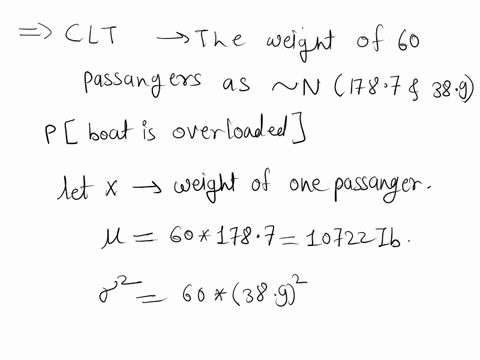 => CLT → The weight of 60
passangers as ~N (178.7 & 38.9)
P[boat is overloaded]
let X → weight of one passanger.
μ = 60*178.7 = 10722 Ib.
σ² = 60*(38.9)²